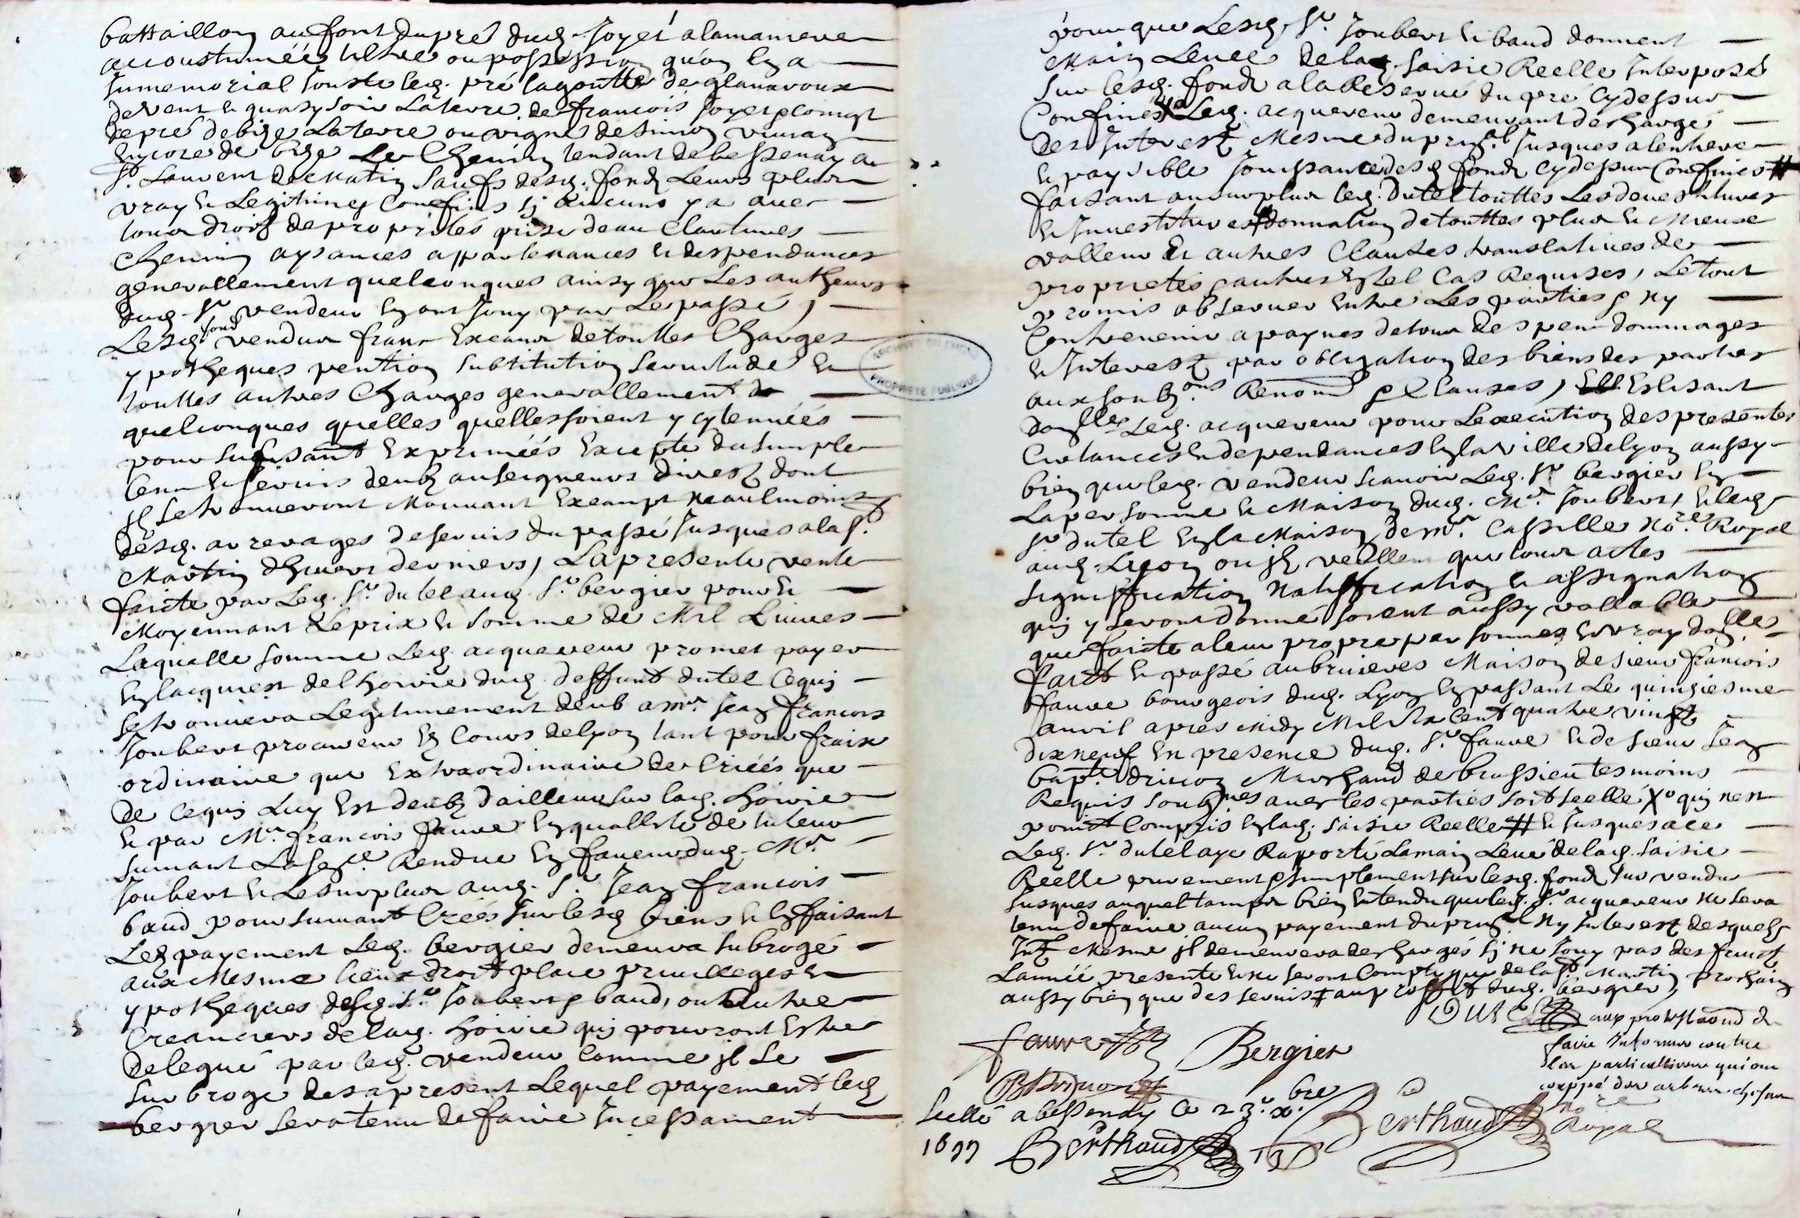 battaillon au font du pré dud. Joyet a la maniere
accoustumées tiltre ou possession qu'on en a
Jmmemorial Jouste led. pré la goutte de glanavoux
de vent et quasy soir La terre de francois Joyet
de pré de bize La terre ou vigne de simon
Encore de bize Le Chemin tendant de bessenay a
St. Laurent Saufs desd. fondz Leurs plus
vray et Legitimes Confins sj aucuns y a avec
tous droitz de proprietés prise deau Coustumes
Chemins aysances appartenances et despendances
generallement quelconques ainsy que Les autheurs
dud. Sr. vendeur en ont Jouy par Le passé,
Lesd. fond vendus franc Exceans de touttes Charges
ypotheques pention substitution servitude et
touttes autres Charges generallement
quelconques quelles quelles soient y cy tenuées
pour suffisant Exprimées Excepté du simple
Cens et servis deub au seigneurs directz dont
Jl se trouveront Mouvant Exempt neaulmoins
desd. arrerages de servis du passé Jusques a la St.
Martin dhivert derniers, La presente vente
faicte par Led. Sr. dutel aud. Sr. bergier pour et
Moyennant Le prix et somme de Mil Livres
Laquelle somme Led. acquereur promet payer
En lacquict de lhoirie dud. deffunt dutel Cequj
se trouvera Legitimement deub a mr. Jean francois
Joubert procureur Es Cours de lyon tant pour fraix
ordinaire que Extraordinaire de Criées que
de Cequj Luy Est deub dailleurs sur lad. hoirie
et par Mr. francois fauvre En quallité de tuteur
suivant La sence Rendue En faveur dud. Mr.
Joubert et Le surplus aud. Sr. Jean francois
baud poursuivant Criées sur lesd biens et En faisant
Les payement Led. bergier demeura subrogé
aux Mesme lieux droit place privilleges et
ypotheques desd. Srs Joubert & baud, ou autre
Creanciers de lad. hoirie quj pourront Estre
delegué par led. vendeur Comme jl Le
subroge des a present Lequel payement led
bergier sera tenu de faire Incessament
pourveu que Lesd. Sr. Joubert et baud donnent
Main Levee de lad. saisie Reelle Interposé
sur lesd. fondz a la Reserve du pré Cydessus
Confinés Xo Led. acquereur demeurant deschargé
des Interestz Mesme du prinl. Jusques a lentiere
et paysible Jouissance desd fondz Cydessus Confinés #
faisant au surplus led. dutel touttes Les deuestitures
et Inuestitures donnation de touttes plus et Mieuse
valleur Et autres Clauses translatives de
proprietés & autres En tel Cas Requises, Le tout
promis observer Entre Les parties & ny
Contrevenir a paynes de tous despens dommages
et Interestz par obligation des biens des parties
aux soubons Renom & Clauses, Eslisant
domlles Led. acquereur pour Lexecution des presentes
Circtances et dependances En la ville de lyon aussy
bien que led. vendeur scavoir Led. Sr. bergier En
La personne et Maison dud. Mr. Joubert, et led.
Sr. dutel En la Maison de Mr. Cassille nore. Royal
aud. Lyon ou jls veullent que tous actes
signiffication Nottiffication et assignation
quj y seront donné soient aussy vallable
que faicte a leur propre personnes et vray domlle
faict et passé au bruieres Maison de sieur francois
fauvre bourgeois dud. Lyon En passant Le quinziesme
avril apres Midy Mil Six Cent quatre vingt
dix neuf En presence dud. Sr. fauvre et de sieur Jean
bapt. Marchand de brussieu tesmoins
Requis soubznes avec les parties soit scellé Xo quj nest
point Compris En lad. saisie Reelle # et Jusques a ce
Led. Sr. dutel aye Raporté La main Leué de lad. saisie
Reelle purement & simplement sur lesd. fondz sus vendu
Jusques auquel temps bien Entendu que led. Sr. acquereur ne sera
tenu de faire aucun payement du prinl. Ny Interest desquels
Intz Mesme jl demeurera deschargés sj ne Jouy pas des fruictz
Lannée presente et ne seront Compté que de la St. Martin prochain
aussy bien que des servist au proffit dud. bergier,
Dutel aux protestaond de
faire Informer contre
Les particulliers quj ont
couppé des arbres
fauvre Bergier
Scellé a bessenay Ce 23e. xbre
1699 Berthaud
Berthaud nore Royal
ARCHIVES DU RHONE
PROPRIÉTÉ PUBLIQUE